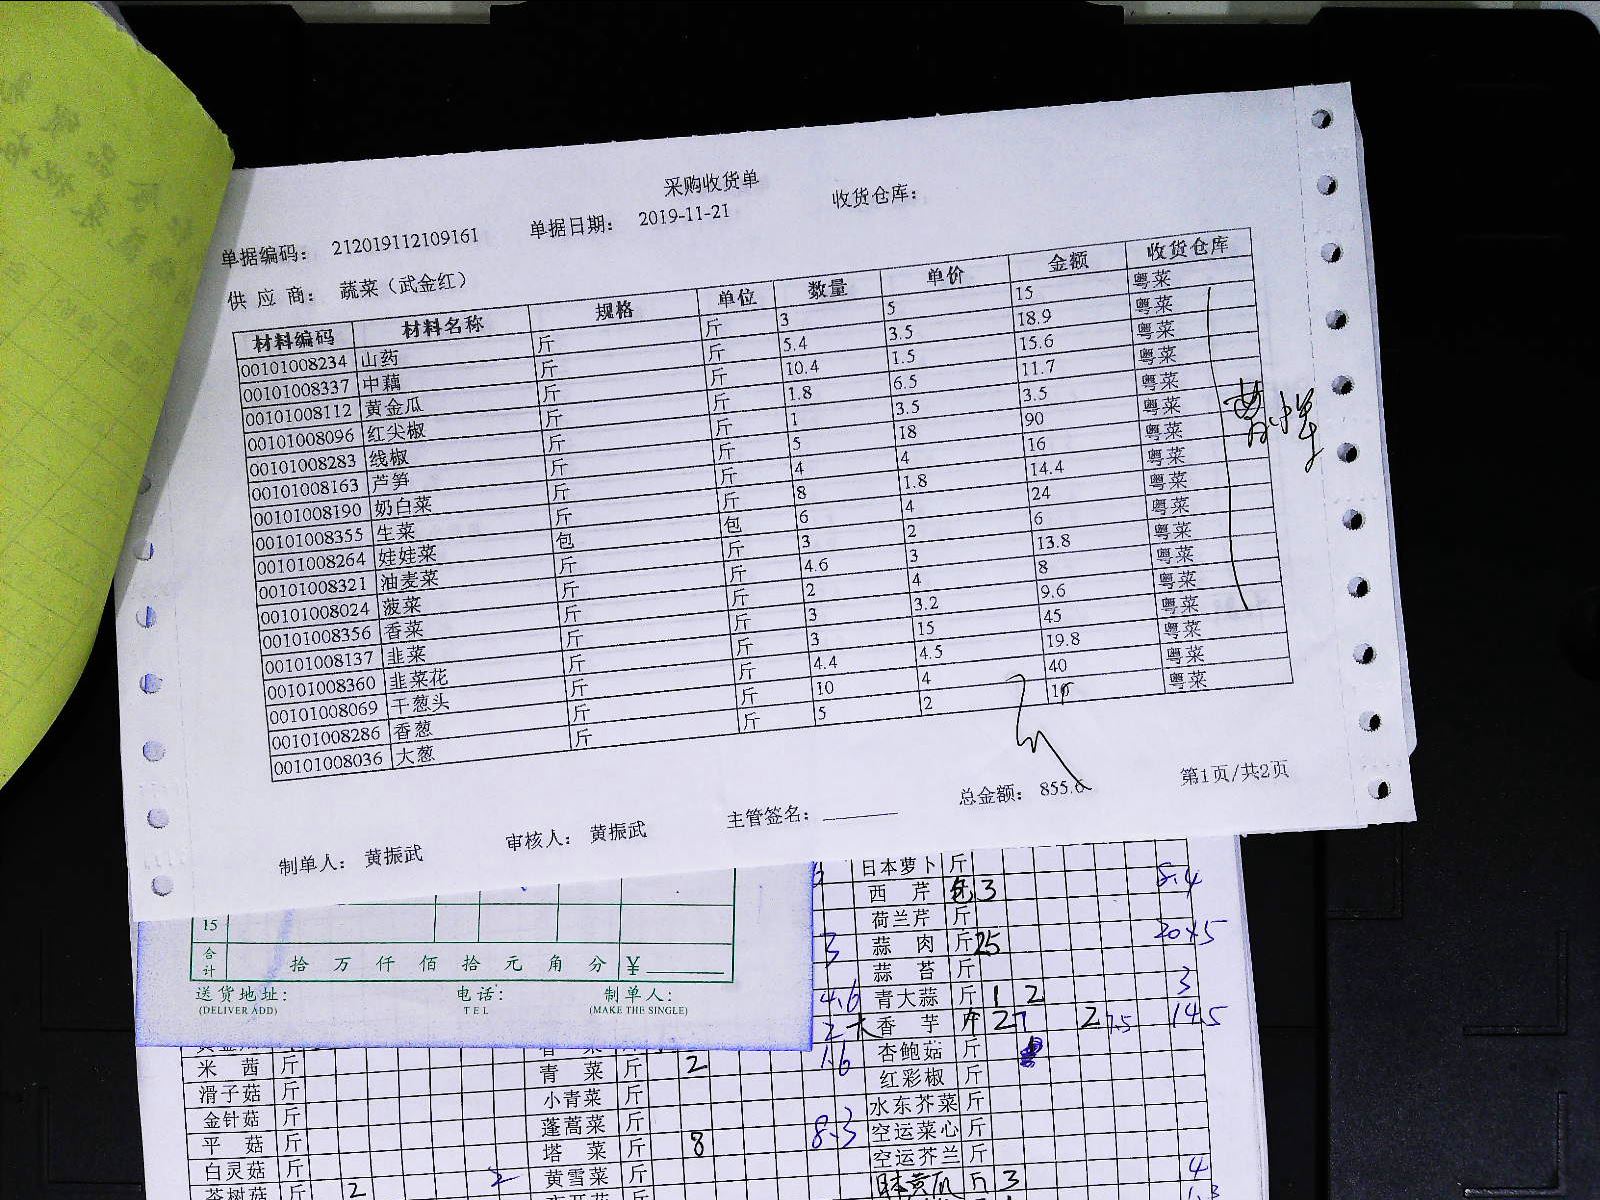 采购收货单
单据编码： 212019112109161 单据日期： 2019-11-21 收货仓库：
供 应 商： 蔬菜（武金红）
材料编码 材料名称 规格 单位 数量 单价 金额 收货仓库
00101008234 山药 斤 斤 3 5 15 粤菜
00101008337 中藕 斤 斤 5.4 3.5 18.9 粤菜
00101008112 黄金瓜 斤 斤 10.4 1.5 15.6 粤菜
00101008096 红尖椒 斤 斤 1.8 6.5 11.7 粤菜
00101008283 线椒 斤 斤 1 3.5 3.5 粤菜
00101008163 芦笋 斤 斤 5 18 90 粤菜
00101008190 奶白菜 斤 斤 4 4 16 粤菜
00101008355 生菜 斤 斤 8 1.8 14.4 粤菜
00101008264 娃娃菜 包 包 6 4 24 粤菜
00101008321 油麦菜 斤 斤 3 2 6 粤菜
00101008024 菠菜 斤 斤 4.6 3 13.8 粤菜
00101008356 香菜 斤 斤 2 4 8 粤菜
00101008137 韭菜 斤 斤 3 3.2 9.6 粤菜
00101008360 韭菜花 斤 斤 3 15 45 粤菜
00101008069 干葱头 斤 斤 4.4 4.5 19.8 粤菜
00101008286 香葱 斤 斤 10 4 40 粤菜
00101008036 大葱 斤 斤 5 2 10 粤菜
制单人： 黄振武 审核人： 黄振武 主管签名： 总金额： 855.6 第1页/共2页
日本萝卜 斤
西 芹 包 3 8.4
荷兰芹 斤
15
3 蒜 肉 斤 25
合计 拾 万 仟 佰 拾 元 角 分 ¥
蒜 苔 斤
送货地址： 电话： 制单人： 4.6 青大蒜 斤 1 2 3
(DELIVER ADD) TEL (MAKE THE SINGLE)
香 芋 斤 27 145
1.6 杏鲍菇 斤
米 茜 斤 青 菜 斤 2 红彩椒 斤
滑子菇 斤 小青菜 斤 水东芥菜 斤
金针菇 斤 蓬蒿菜 斤 8.3 空运菜心 斤
平 菇 斤 塔 菜 斤 8 空运芥兰 斤
白灵菇 斤 2 黄雪菜 斤 斤 3 4
茶树菇 斤 2